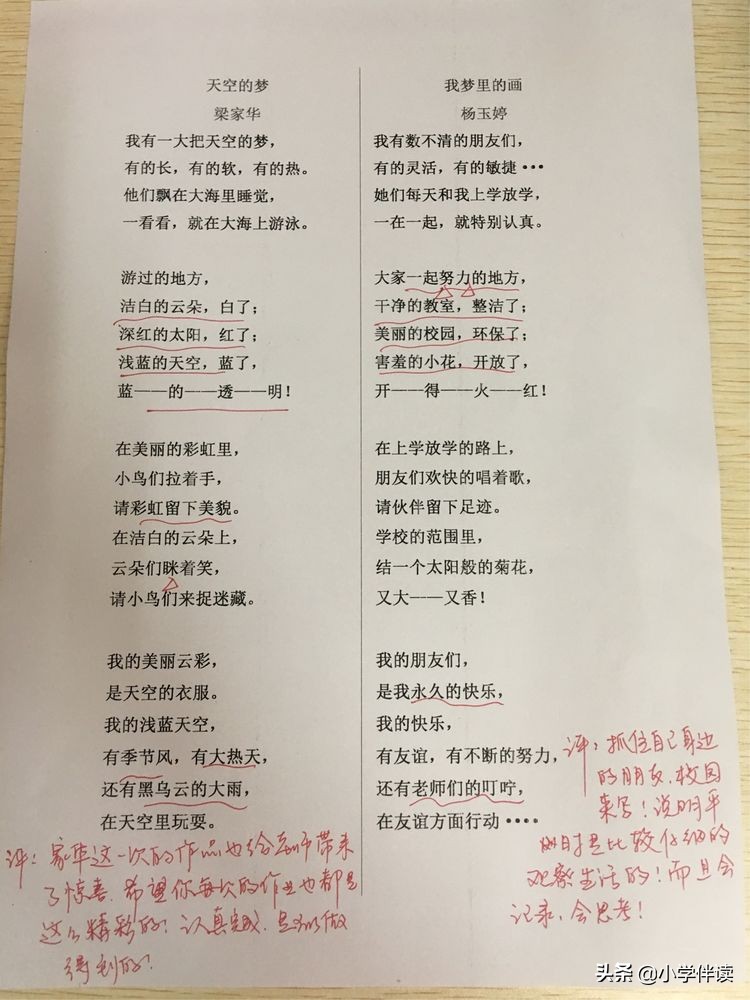 天空的梦
梁家华
我有一大把天空的梦，
有的长，有的软，有的热。
他们飘在大海里睡觉，
一看看，就在大海上游泳。
游过的地方，
洁白的云朵，白了；
深红的太阳，红了；
浅蓝的天空，蓝了，
蓝——的——透——明！
在美丽的彩虹里，
小鸟们拉着手，
请彩虹留下美貌。
在洁白的云朵上，
云朵们眯着笑，
请小鸟们来捉迷藏。
我的美丽云彩，
是天空的衣服。
我的浅蓝天空，
有季节风，有大热天，
还有黑乌云的大雨，
在天空里玩耍。
评：家华这一次的作品也给老师带来
了惊喜，希望你每次的作业也都是
这么精彩的！认真完成，是可以做
得到的！
我梦里的画
杨玉婷
我有数不清的朋友们，
有的灵活，有的敏捷···
她们每天和我上学放学，
一在一起，就特别认真。
大家一起努力的地方，
干净的教室，整洁了；
美丽的校园，环保了；
害羞的小花，开放了，
开——得——火——红！
在上学放学的路上，
朋友们欢快的唱着歌，
请伙伴留下足迹。
学校的范围里，
结一个太阳般的菊花，
又大——又香！
我的朋友们，
是我永久的快乐，
我的快乐，
有友谊，有不断的努力，
还有老师们的叮咛，
在友谊方面行动····
评：抓住自己身边
的朋友、校园
来写！说明平
时是比较仔细的
观察生活的！而且会
记录、会思考！
头条 @小学伴读